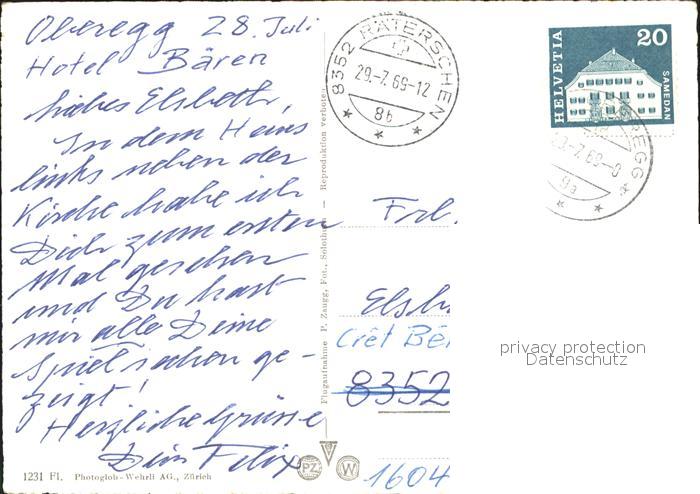 Oberegg 28. Juli
Hotel Bären
liebes Elsbeth,
In dem Haus
links neben der
Kirche habe ich
Dich zum ersten
Mal gesehen
und Du hast
mir alle Deine
Spielsachen ge-
zeigt!
Herzliche Grüsse
Dein Felix
1231 Fl. Photoglob-Wehrli AG., Zürich
Flugaufnahme P. Zaugg, Fot., Solothurn — Reproduktion verboten
PZ W
8352 RÄTERSCHEN
29.-7.69-12
8b
HELVETIA
20
SAMEDAN
EREGG
-7.69-0
9a
Frl.
Elsb
Crêt Bé
8352
1604
privacy protection
Datenschutz